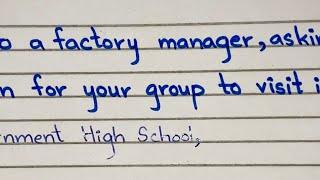 o a factory manager, askin
n for your group to visit i
rnment High School,